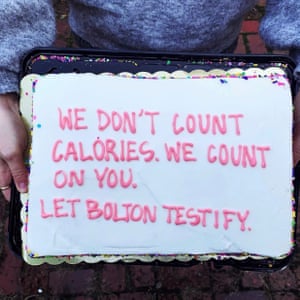 WE DON'T COUNT
CALORIES. WE COUNT
ON YOU.
LET BOLTON TESTIFY.